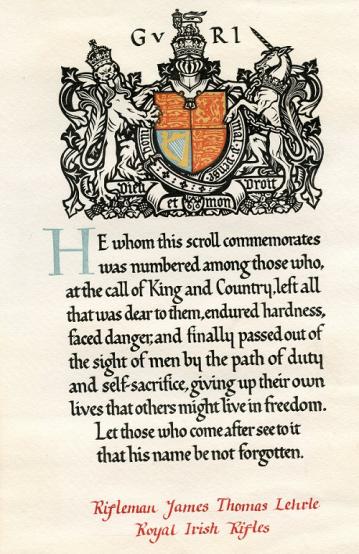 G V R I
Dieu et mon Droit
HE whom this scroll commemorates
was numbered among those who,
at the call of King and Country, left all
that was dear to them, endured hardness,
faced danger, and finally passed out of
the sight of men by the path of duty
and self-sacrifice, giving up their own
lives that others might live in freedom.
Let those who come after see to it
that his name be not forgotten.
Rifleman James Thomas Lehrle
Royal Irish Rifles